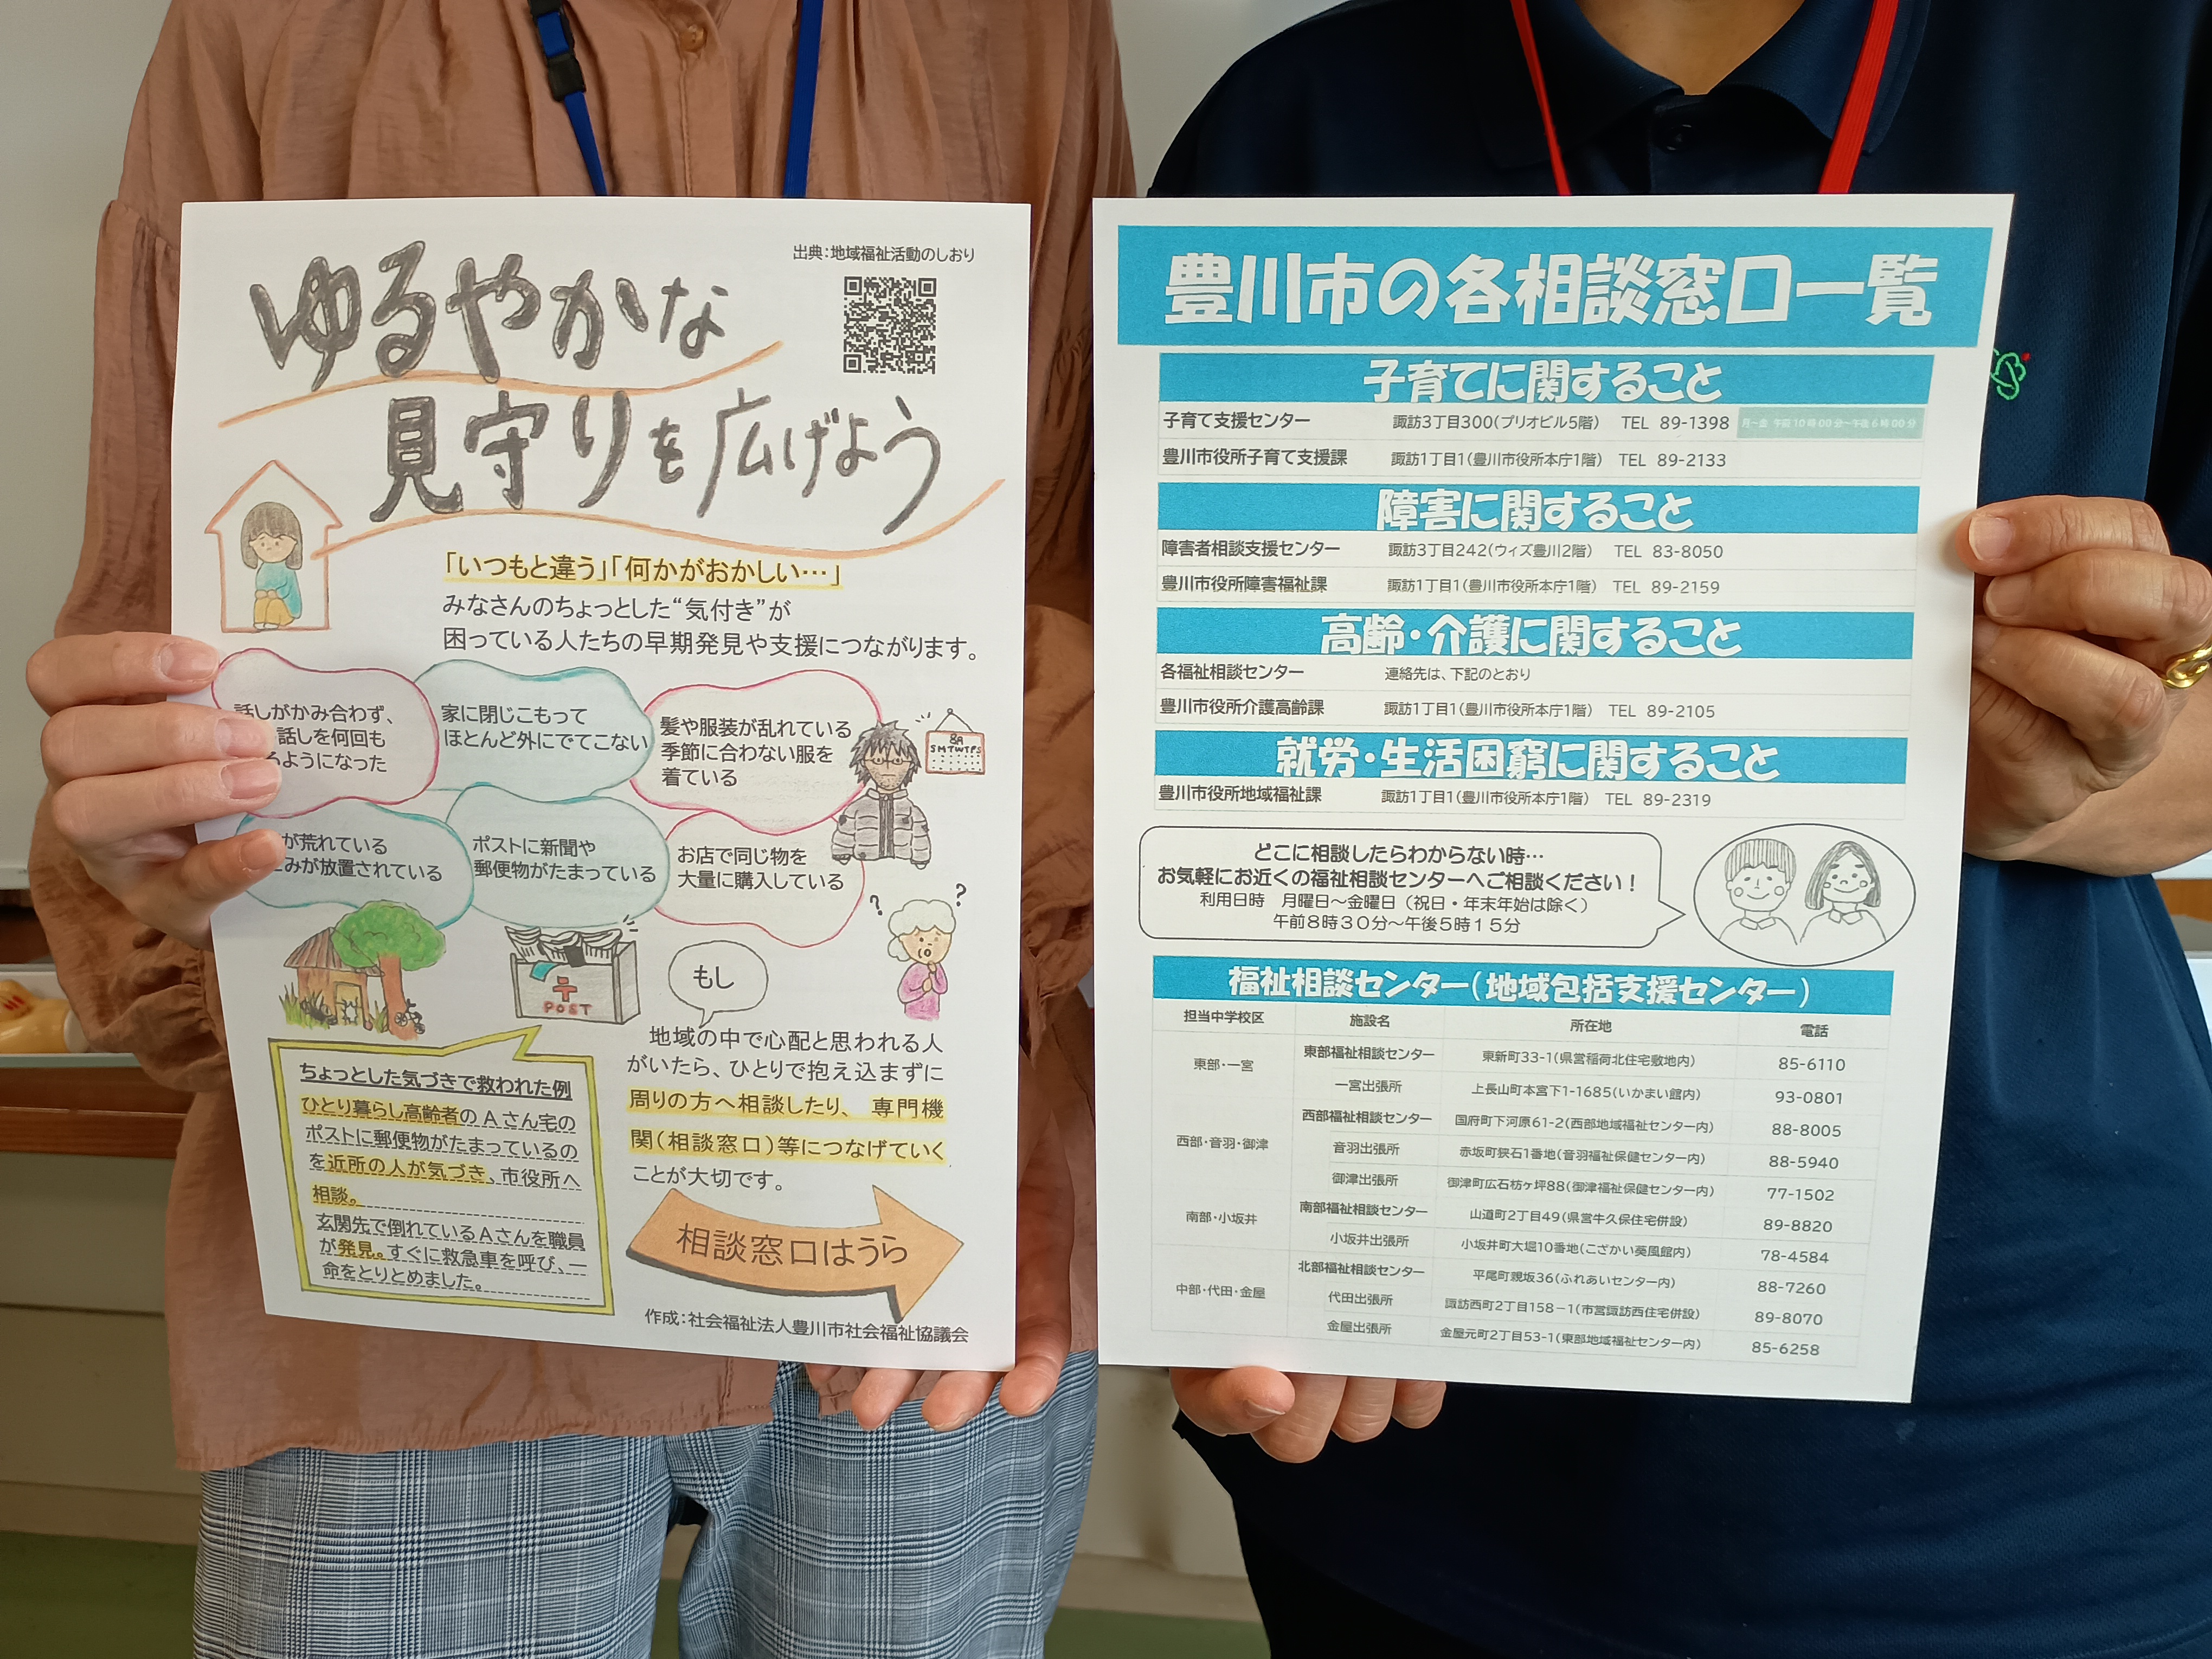 出典：地域福祉活動のしおり
ゆるやかな
見守りを広げよう
「いつもと違う」「何かがおかしい…」
みなさんのちょっとした“気付き”が
困っている人たちの早期発見や支援につながります。
話しがかみ合わず、
話しを何回も
るようになった
家に閉じこもって
ほとんど外にでてこない
髪や服装が乱れている
季節に合わない服を
着ている
8月
SMTWTFS
が荒れている
みが放置されている
ポストに新聞や
郵便物がたまっている
お店で同じ物を
大量に購入している
? ?
POST
もし
地域の中で心配と思われる人
がいたら、ひとりで抱え込まずに
周りの方へ相談したり、専門機
関（相談窓口）等につなげていく
ことが大切です。
ちょっとした気づきで救われた例
ひとり暮らし高齢者のAさん宅の
ポストに郵便物がたまっているの
を近所の人が気づき、市役所へ
相談。
玄関先で倒れているAさんを職員
が発見。すぐに救急車を呼び、一
命をとりとめました。
相談窓口はうら
作成：社会福祉法人豊川市社会福祉協議会
豊川市の各相談窓口一覧
子育てに関すること
子育て支援センター 諏訪3丁目300（プリオビル5階） TEL 89-1398 月～金 午前10時00分～午後6時00分
豊川市役所子育て支援課 諏訪1丁目1（豊川市役所本庁1階） TEL 89-2133
障害に関すること
障害者相談支援センター 諏訪3丁目242（ウィズ豊川2階） TEL 83-8050
豊川市役所障害福祉課 諏訪1丁目1（豊川市役所本庁1階） TEL 89-2159
高齢・介護に関すること
各福祉相談センター 連絡先は、下記のとおり
豊川市役所介護高齢課 諏訪1丁目1（豊川市役所本庁1階） TEL 89-2105
就労・生活困窮に関すること
豊川市役所地域福祉課 諏訪1丁目1（豊川市役所本庁1階） TEL 89-2319
どこに相談したらわからない時…
お気軽にお近くの福祉相談センターへご相談ください！
利用日時 月曜日～金曜日（祝日・年末年始は除く）
午前８時３０分～午後５時１５分
福祉相談センター（地域包括支援センター）
担当中学校区 施設名 所在地 電話
東部・一宮 東部福祉相談センター 東新町33-1（県営稲荷北住宅敷地内） 85-6110
一宮出張所 上長山町本宮下1-1685（いかまい館内） 93-0801
西部・音羽・御津 西部福祉相談センター 国府町下河原61-2（西部地域福祉センター内） 88-8005
音羽出張所 赤坂町狭石1番地（音羽福祉保健センター内） 88-5940
御津出張所 御津町広石枋ヶ坪88（御津福祉保健センター内） 77-1502
南部・小坂井 南部福祉相談センター 山道町2丁目49（県営牛久保住宅併設） 89-8820
小坂井出張所 小坂井町大堀10番地（こざかい葵風館内） 78-4584
中部・代田・金屋 北部福祉相談センター 平尾町親坂36（ふれあいセンター内） 88-7260
代田出張所 諏訪西町2丁目158－1（市営諏訪西住宅併設） 89-8070
金屋出張所 金屋元町2丁目53-1（東部地域福祉センター内） 85-6258